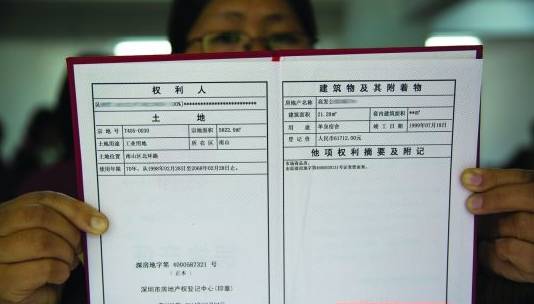 权利人
100%)**************************
土地
宗地号 T405-0030 宗地面积 5022.5㎡
土地用途 工业用地 所在区 南山
土地位置 南山区北环路
使用年限 70年，从1998年02月28日至2068年02月28日止。
深房地字第 4000587321 号
(正本)
深圳市房地产权登记中心(印章)
建筑物及其附着物
房地产名称 高发公
建筑面积 21.29㎡ 套内建筑面积 **㎡
用途 单身宿舍 竣工日期 1999年07月19日
登记价 人民币61712.00元
他项权利摘要及附记
市场商品房。